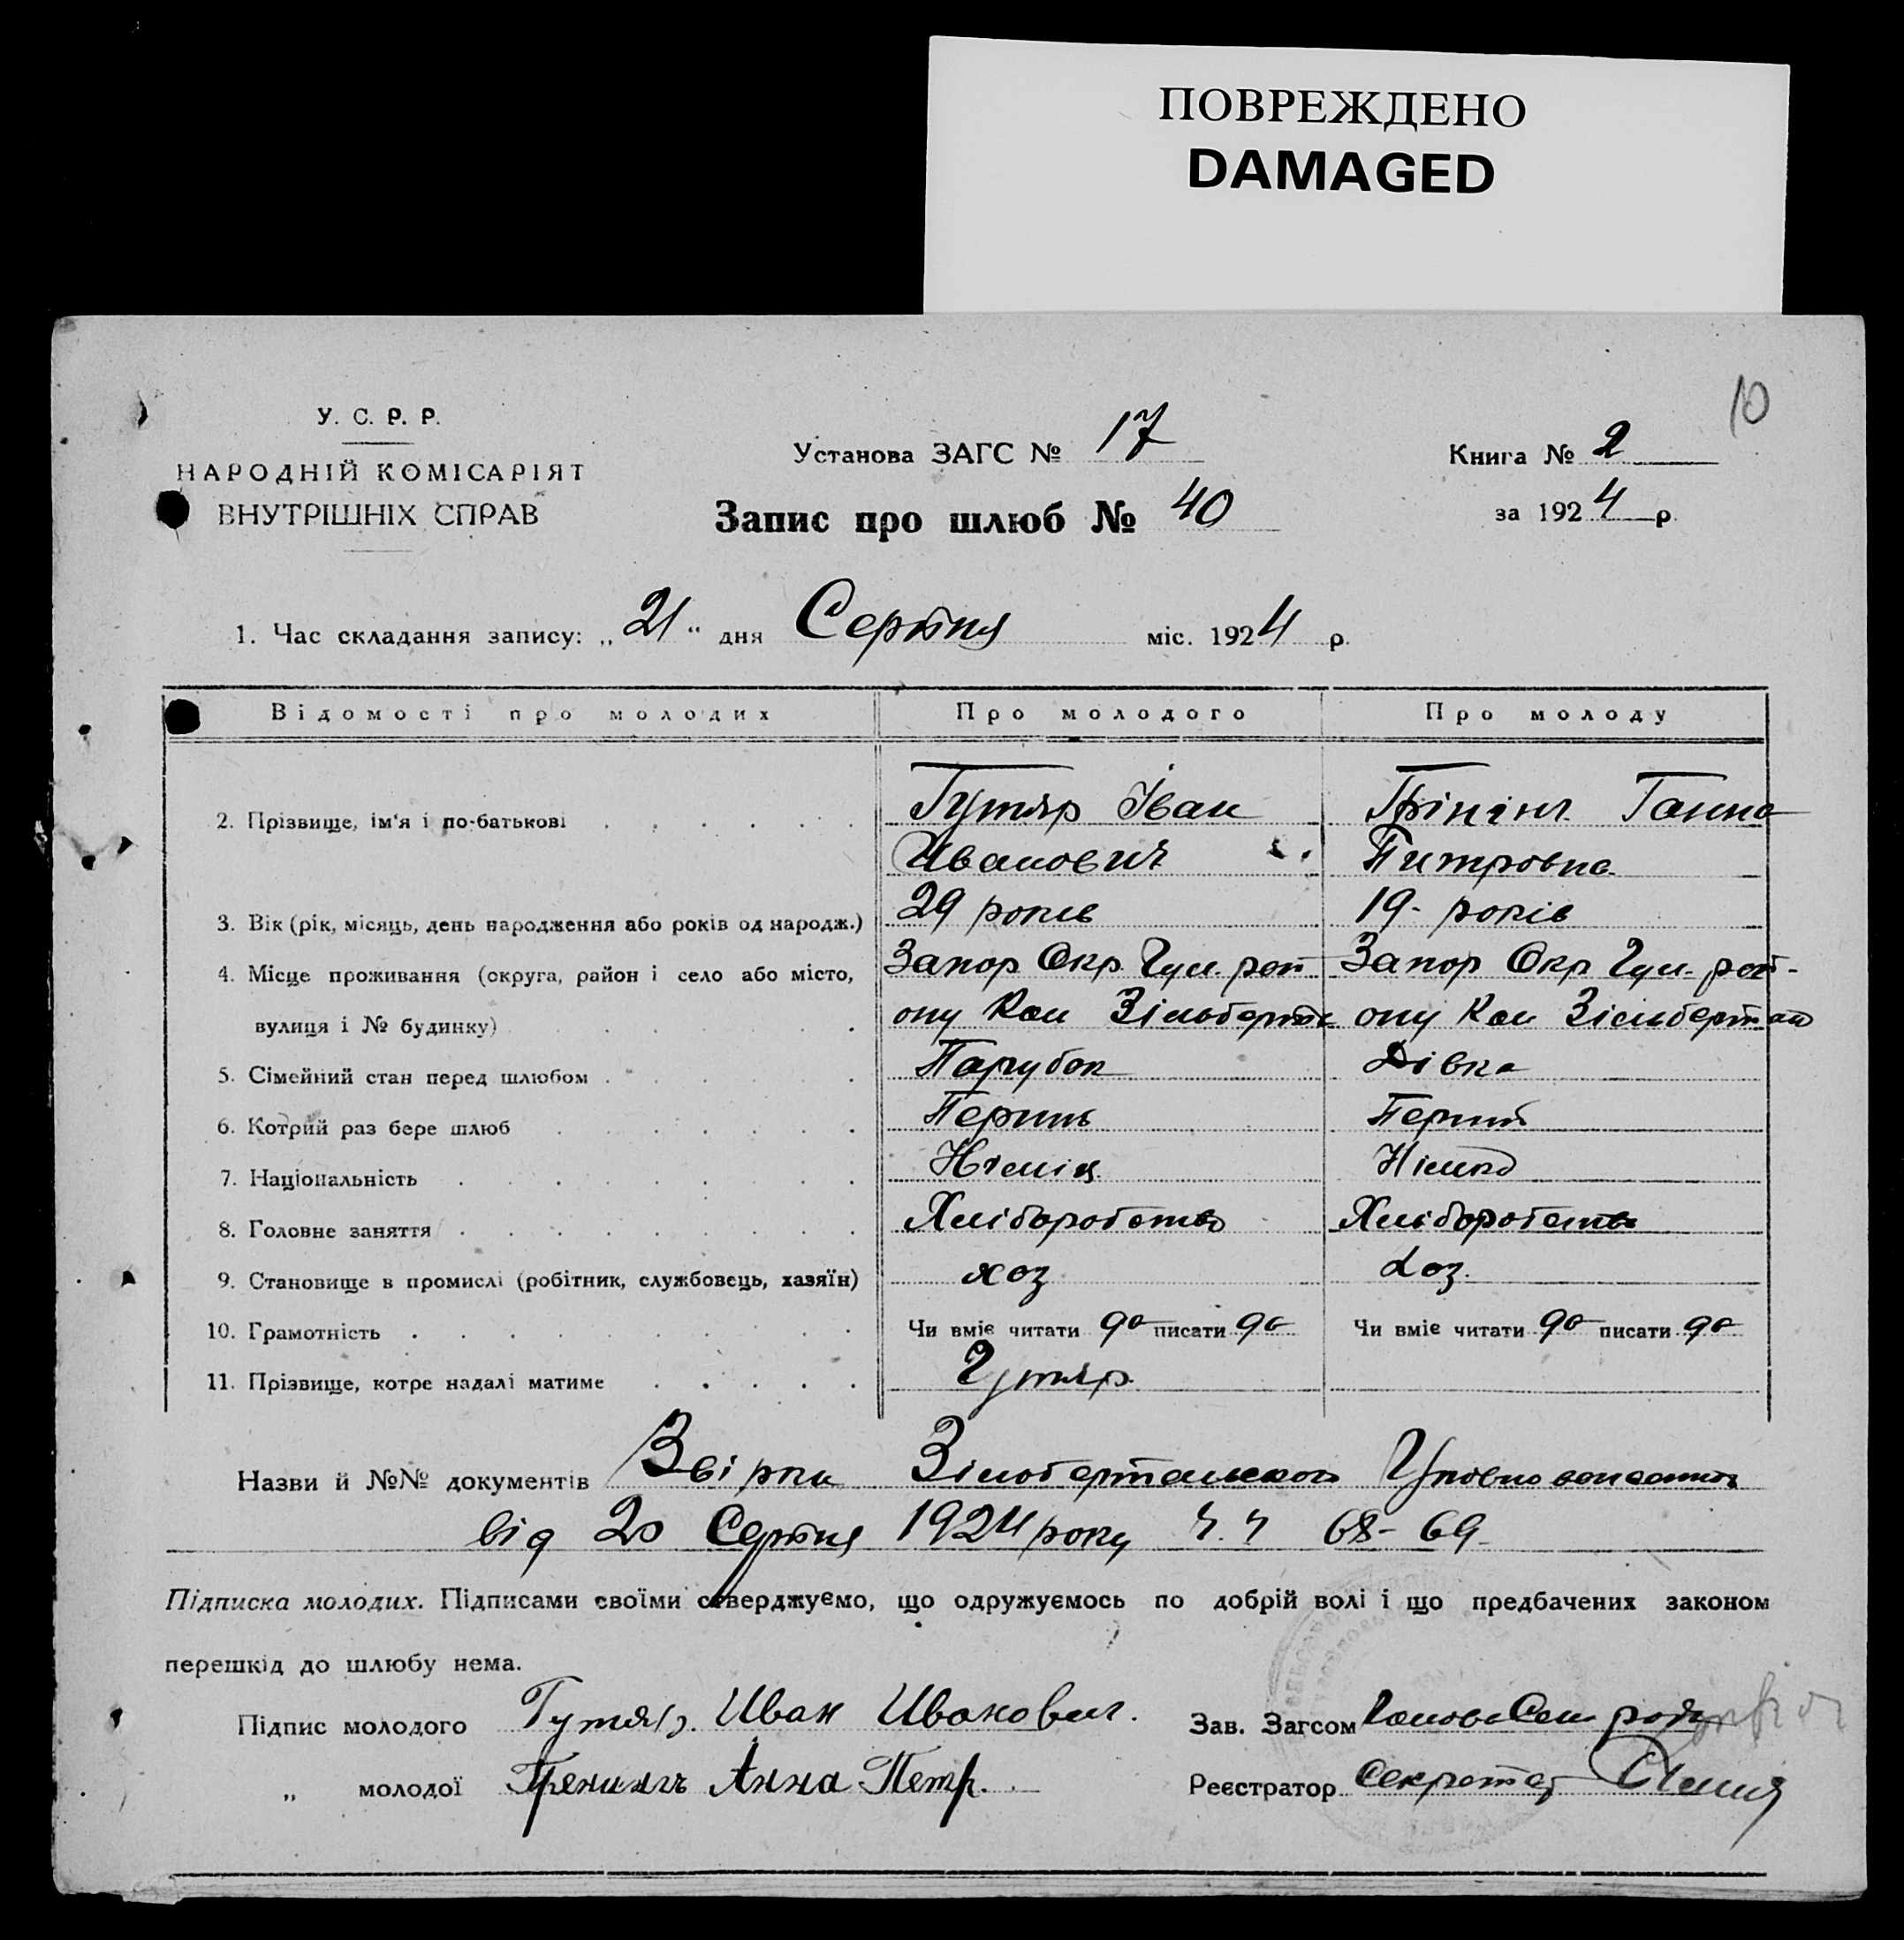 ПОВРЕЖДЕНО
DAMAGED
10
У. С. Р. Р.
НАРОДНІЙ КОМІСАРІЯТ
ВНУТРІШНІХ СПРАВ
Установа ЗАГС № 17
Книга № 2
Запис про шлюб № 40
за 1924 р.
1. Час складання запису: „21“ дня Серпня міс. 1924 р.
Відомості про молодих Про молодого Про молоду
2. Прізвище, ім'я і по-батькові Гутяр Іван Ганна
Иванович Питровна
3. Вік (рік, місяць, день народження або років од народж.) 29 років 19- років
4. Місце проживання (округа, район і село або місто, Запор Окр. Гул. рай Запор Окр Гул. рай-
вулиця і № будинку) ону Кол Зільберталь ону Кол Зільберталь
5. Сімейний стан перед шлюбом Парубок Дівка
6. Котрий раз бере шлюб Перший Перший
7. Національність Німіц Німка
8. Головне заняття Хліборобство Хліборобство
9. Становище в промислі (робітник, службовець, хазяїн) хоз хоз.
10. Грамотність Чи вміє читати да писати да Чи вміє читати да писати да
11. Прізвище, котре надалі матиме Гутяр
Назви й №№ документів Звірки
від 20 Серпня 1924 року 68-69
Підписка молодих. Підписами своїми стверджуємо, що одружуємось по добрій волі і що предбачених законом
перешкід до шлюбу нема.
Підпис молодого Гутяр. Иван Иванович.
Зав. Загсом Голова Сел ради
„ молодої Гренингъ Анна Петр.
Реєстратор Секретар